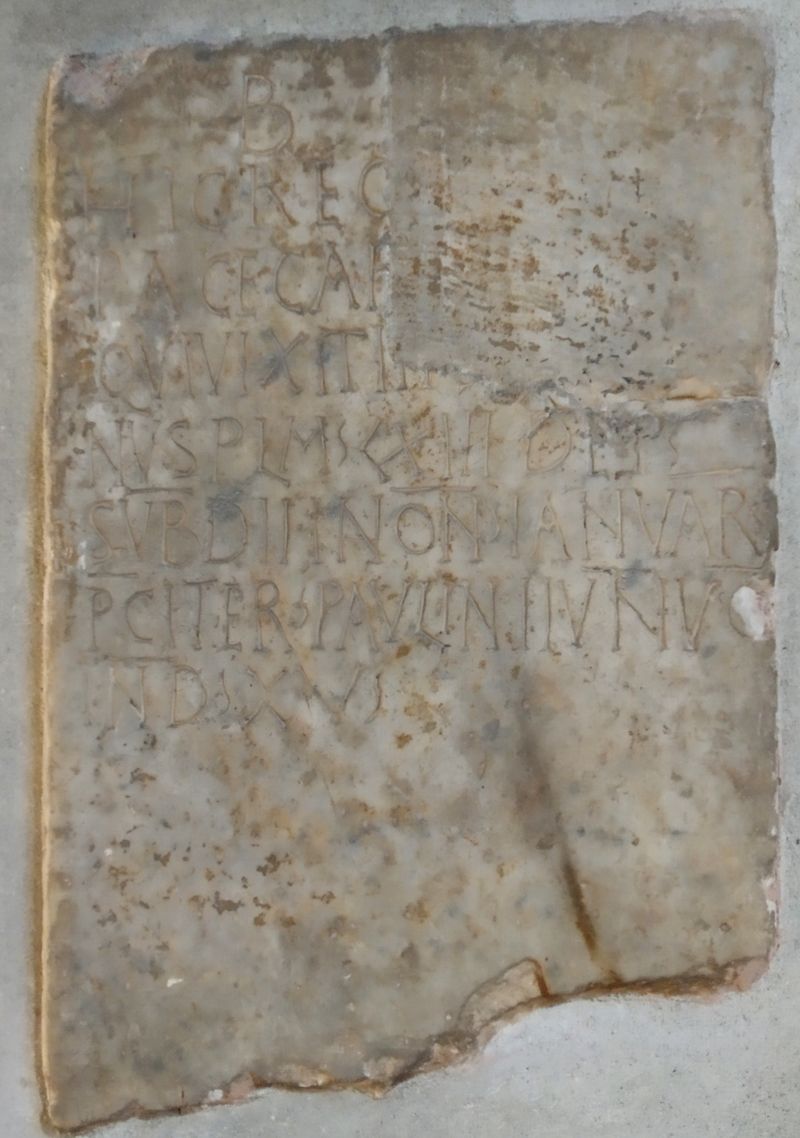 B
HIC REQ
PACE CAN
QVI VIXIT IN
NVS PL MS XIII DEPS
SVB D IIII NON IANVAR
PC ITER PAVLINI IVN VC
IND S XV S